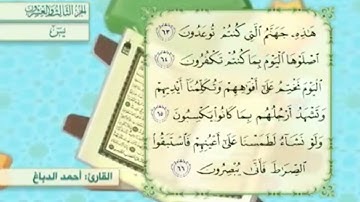 الجزء الثالث والعشرون
يس
هَٰذِهِۦ جَهَنَّمُ ٱلَّتِي كُنتُمْ تُوعَدُونَ ٦٣
ٱصْلَوْهَا ٱلْيَوْمَ بِمَا كُنتُمْ تَكْفُرُونَ ٦٤
ٱلْيَوْمَ نَخْتِمُ عَلَىٰٓ أَفْوَٰهِهِمْ وَتُكَلِّمُنَآ أَيْدِيهِمْ
وَتَشْهَدُ أَرْجُلُهُم بِمَا كَانُوا۟ يَكْسِبُونَ ٦٥
وَلَوْ نَشَآءُ لَطَمَسْنَا عَلَىٰٓ أَعْيُنِهِمْ فَٱسْتَبَقُوا۟
ٱلصِّرَٰطَ فَأَنَّىٰ يُبْصِرُونَ ٦٦
القارئ: أحمد الدباغ